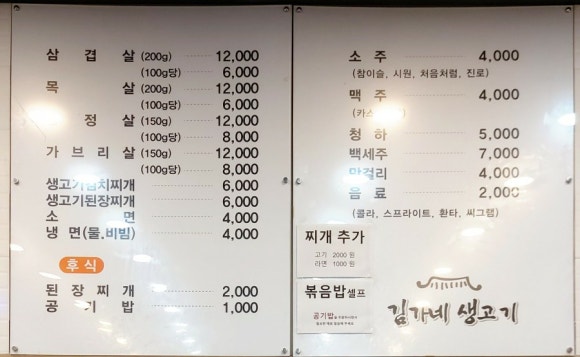 삼 겹 살 (200g) 12,000
(100g당) 6,000
목 살 (200g) 12,000
(100g당) 6,000
정 살 (150g) 12,000
(100g당) 8,000
가브리살 (150g) 12,000
(100g당) 8,000
생고기김치찌개 6,000
생고기된장찌개 6,000
소 면 4,000
냉 면(물.비빔) 4,000
후식
된장찌개 2,000
공 기 밥 1,000
소 주 4,000
(참이슬, 시원, 처음처럼, 진로)
맥 주 4,000
(카스
청 하 5,000
백세주 7,000
막걸리 4,000
음 료 2,000
(콜라, 스프라이트, 환타, 씨그램)
찌개 추가
고기 2000 원
라면 1000 원
볶음밥셀프
공기밥
김가네 생고기